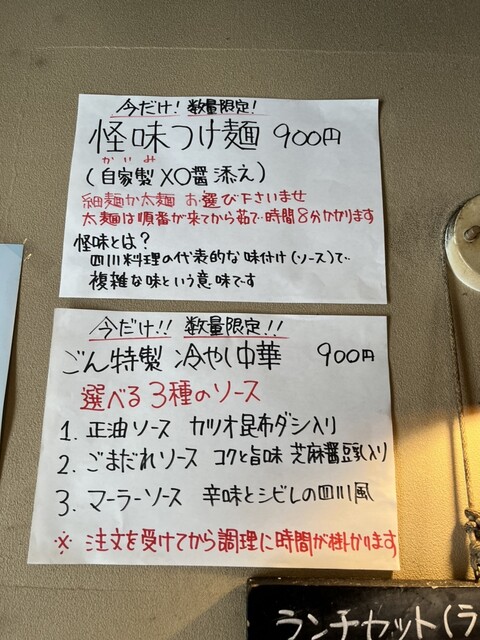 今だけ! 数量限定!
怪味つけ麺 900円
かいみ
(自家製 XO醤 添え)
細麺か太麺 お選び下さいませ
太麺は順番が来てから茹で時間8分かかります
怪味とは?
四川料理の代表的な味付け(ソース)で
複雑な味という意味です
今だけ!! 数量限定!!
ごん特製 冷やし中華 900円
選べる3種のソース
1. 正油ソース カツオ昆布ダシ入り
2. ごまだれソース コクと旨味 芝麻醤豆乳入り
3. マーラーソース 辛味とシビレの四川風
※ 注文を受けてから調理に時間が掛かります
ランチカット(ラ